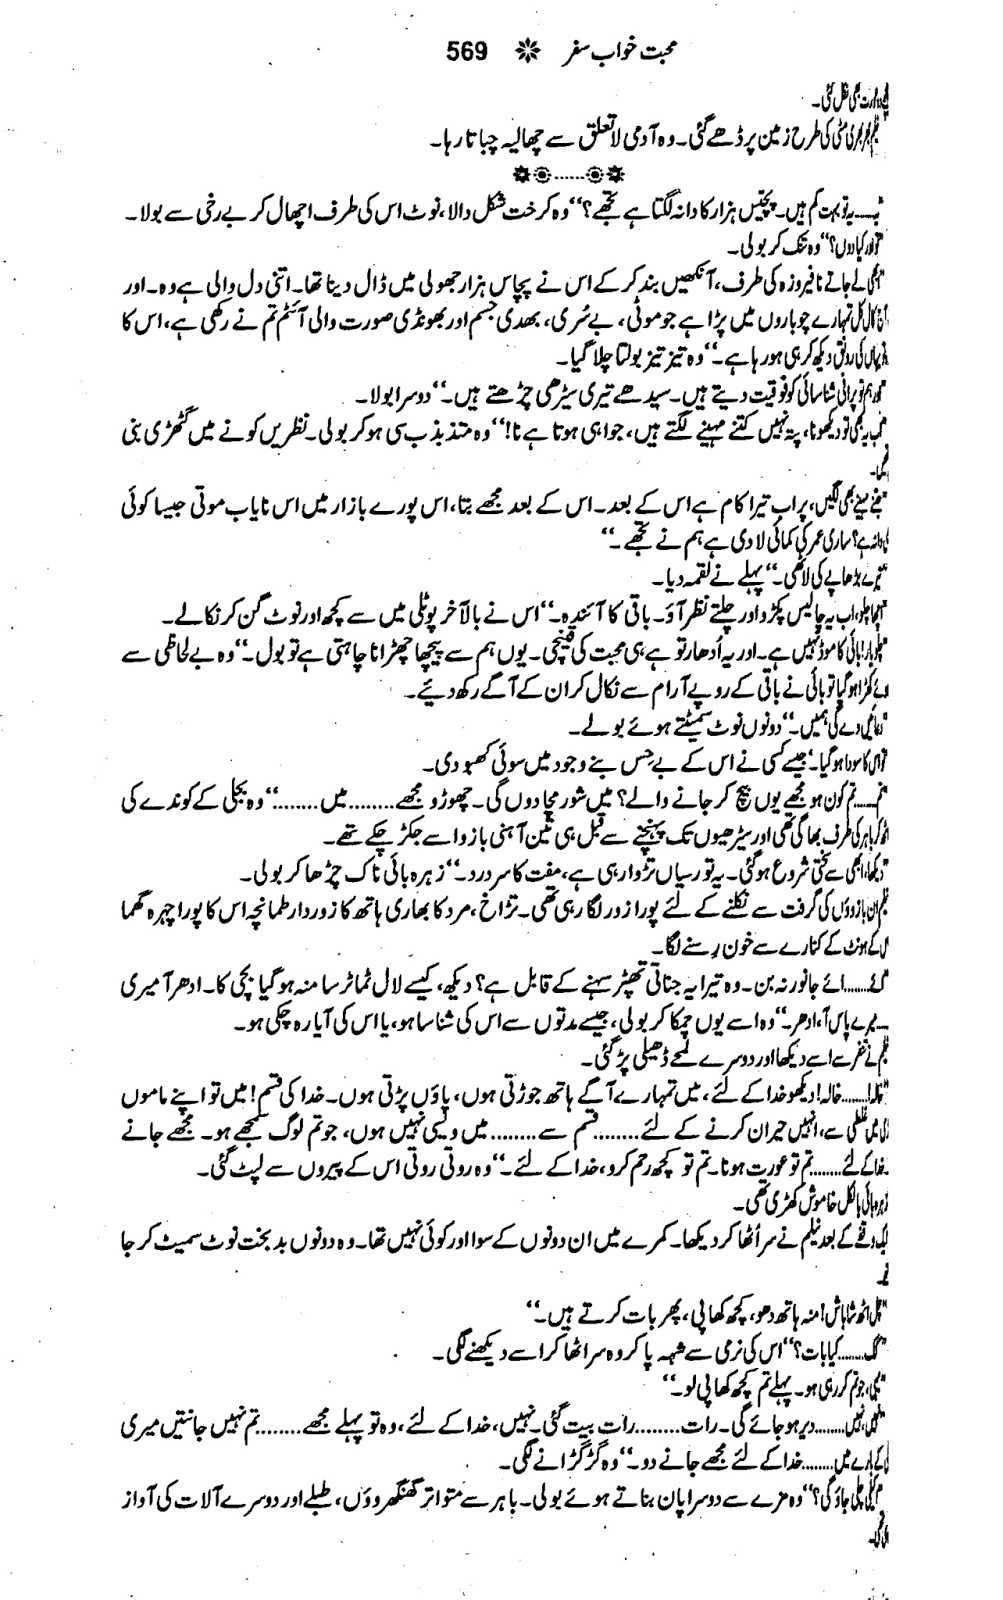 محبت خواب سفر ❋ 569
نکل گئی۔
مٹی کی طرح زمین پر ڈھے گئی۔ وہ آدمی لاتعلق سے چھالیہ چباتا رہا۔
یہ تو بہت کم ہیں۔ پچیس ہزار کا دانہ لگتا ہے تجھے؟‘‘ وہ کرخت شکل والا، نوٹ اس کی طرف اچھال کر بے رخی سے بولا۔
کیا دوں؟‘‘ وہ تنک کر بولی۔
لے جاتے نا فیروزہ کی طرف، آنکھیں بند کر کے اس نے پچاس ہزار جھولی میں ڈال دینا تھا۔ اتنی دل والی ہے وہ۔ اور
کل تمہارے چوباروں میں پڑا ہے جو موٹی، بے سُری، بھدی جسم اور بھونڈی صورت والی آئٹم تم نے رکھی ہے، اس کا
کی رونق دیکھ کر ہی ہو رہا ہے۔‘‘ وہ تیز تیز بولتا چلا گیا۔
ہم تو پرانی شناسائی کو فوقیت دیتے ہیں۔ سیدھے تیری سیڑھی چڑھتے ہیں۔‘‘ دوسرا بولا۔
یہ بھی تو دیکھو نا، پتہ نہیں کتنے مہینے لگتے ہیں، جوا ہی ہوتا ہے نا!‘‘ وہ متذبذب سی ہو کر بولی۔ نظریں کونے میں گٹھڑی بنی
مہینے بھی لگیں، پر اب تیرا کام ہے اس کے بعد۔ اس کے بعد مجھے بتا، اس پورے بازار میں اس نایاب موتی جیسا کوئی
دانہ ہے؟ ساری عمر کی کمائی لا دی ہے ہم نے تجھے۔‘‘
تیرے بڑھاپے کی لاٹھی۔‘‘ پہلے نے لقمہ دیا۔
اچھا چلو، اب یہ چالیس پکڑو اور چلتے نظر آؤ۔ باقی کا آئندہ۔‘‘ اس نے بالآخر پوٹلی میں سے کچھ اور نوٹ گن کر نکالے۔
بائی کا موڈ نہیں ہے۔ اور یہ اُدھار تو ہے ہی محبت کی قینچی۔ یوں ہم سے پیچھا چھڑانا چاہتی ہے تو بول۔‘‘ وہ بے لحاظی سے
کھڑا ہو گیا تو بائی نے باقی کے روپے آرام سے نکال کر ان کے آگے رکھ دیئے۔
دعائیں دے گی ہمیں۔‘‘ دونوں نوٹ سمیٹتے ہوئے بولے۔
کا سودا ہو گیا۔‘ جیسے کسی نے اس کے بے حِس بنے وجود میں سوئی کھبو دی۔
تم کون ہو مجھے یوں بیچ کر جانے والے؟ میں شور مچا دوں گی۔ چھوڑو مجھے........ میں........‘‘ وہ بجلی کے کوندے کی
باہر کی طرف بھاگی تھی اور سیڑھیوں تک پہنچنے سے قبل ہی تین آہنی بازو اسے جکڑ چکے تھے۔
دیکھا، ابھی سے سختی شروع ہو گئی۔ یہ تو رسیاں تڑوا رہی ہے، مفت کا سر درد۔‘‘ زہرہ بائی ناک چڑھا کر بولی۔
نیلم ان بازوؤں کی گرفت سے نکلنے کے لئے پورا زور لگا رہی تھی۔ تڑاخ، مرد کا بھاری ہاتھ کا زور دار طمانچہ اس کا پورا چہرہ گھما
کے ہونٹ کے کنارے سے خون رِسنے لگا۔
اے جانور نہ بن۔ وہ تیرا یہ جناتی تھپڑ سہنے کے قابل ہے؟ دیکھ، کیسے لال ٹماٹر سا منہ ہو گیا بچی کا۔ ادھر آ میری
میرے پاس آ، ادھر۔‘‘ وہ اسے یوں چمکا کر بولی، جیسے مدتوں سے اس کی شناسا ہو، یا اس کی آیا رہ چکی ہو۔
نیلم نے تنفر سے اسے دیکھا اور دوسرے لمحے ڈھیلی پڑ گئی۔
خالہ! دیکھو خدا کے لئے، میں تمہارے آگے ہاتھ جوڑتی ہوں، پاؤں پڑتی ہوں۔ خدا کی قسم! میں تو اپنے ماموں
غلطی سے، انہیں حیران کرنے کے لئے........ قسم سے........ میں ویسی نہیں ہوں، جو تم لوگ سمجھے ہو۔ مجھے جانے
خدا کے لئے........ تم تو عورت ہو نا۔ تم تو کچھ رحم کرو، خدا کے لئے۔‘‘ وہ روتی روتی اس کے پیروں سے لپٹ گئی۔
زہرہ بائی بالکل خاموش کھڑی تھی۔
وقفے کے بعد نیلم نے سر اُٹھا کر دیکھا۔ کمرے میں ان دونوں کے سوا اور کوئی نہیں تھا۔ وہ دونوں بدبخت نوٹ سمیٹ کر جا
اٹھ شاباش! منہ ہاتھ دھو، کچھ کھا پی، پھر بات کرتے ہیں۔‘‘
کیا بات؟‘‘ اس کی نرمی سے شہہ پا کر وہ سر اٹھا کر اسے دیکھنے لگی۔
جو تم کر رہی ہو۔ پہلے تم کچھ کھا پی لو۔‘‘
نہیں، نہیں........ دیر ہو جائے گی۔ رات........ رات بیت گئی۔ نہیں، خدا کے لئے، وہ تو پہلے مجھے........ تم نہیں جانتیں میری
کے بارے میں........ خدا کے لئے مجھے جانے دو۔‘‘ وہ گڑگڑانے لگی۔
چلی جاؤ گی؟‘‘ وہ مزے سے دوسرا پان بناتے ہوئے بولی۔ باہر سے متواتر گھنگھروؤں، طبلے اور دوسرے آلات کی آواز